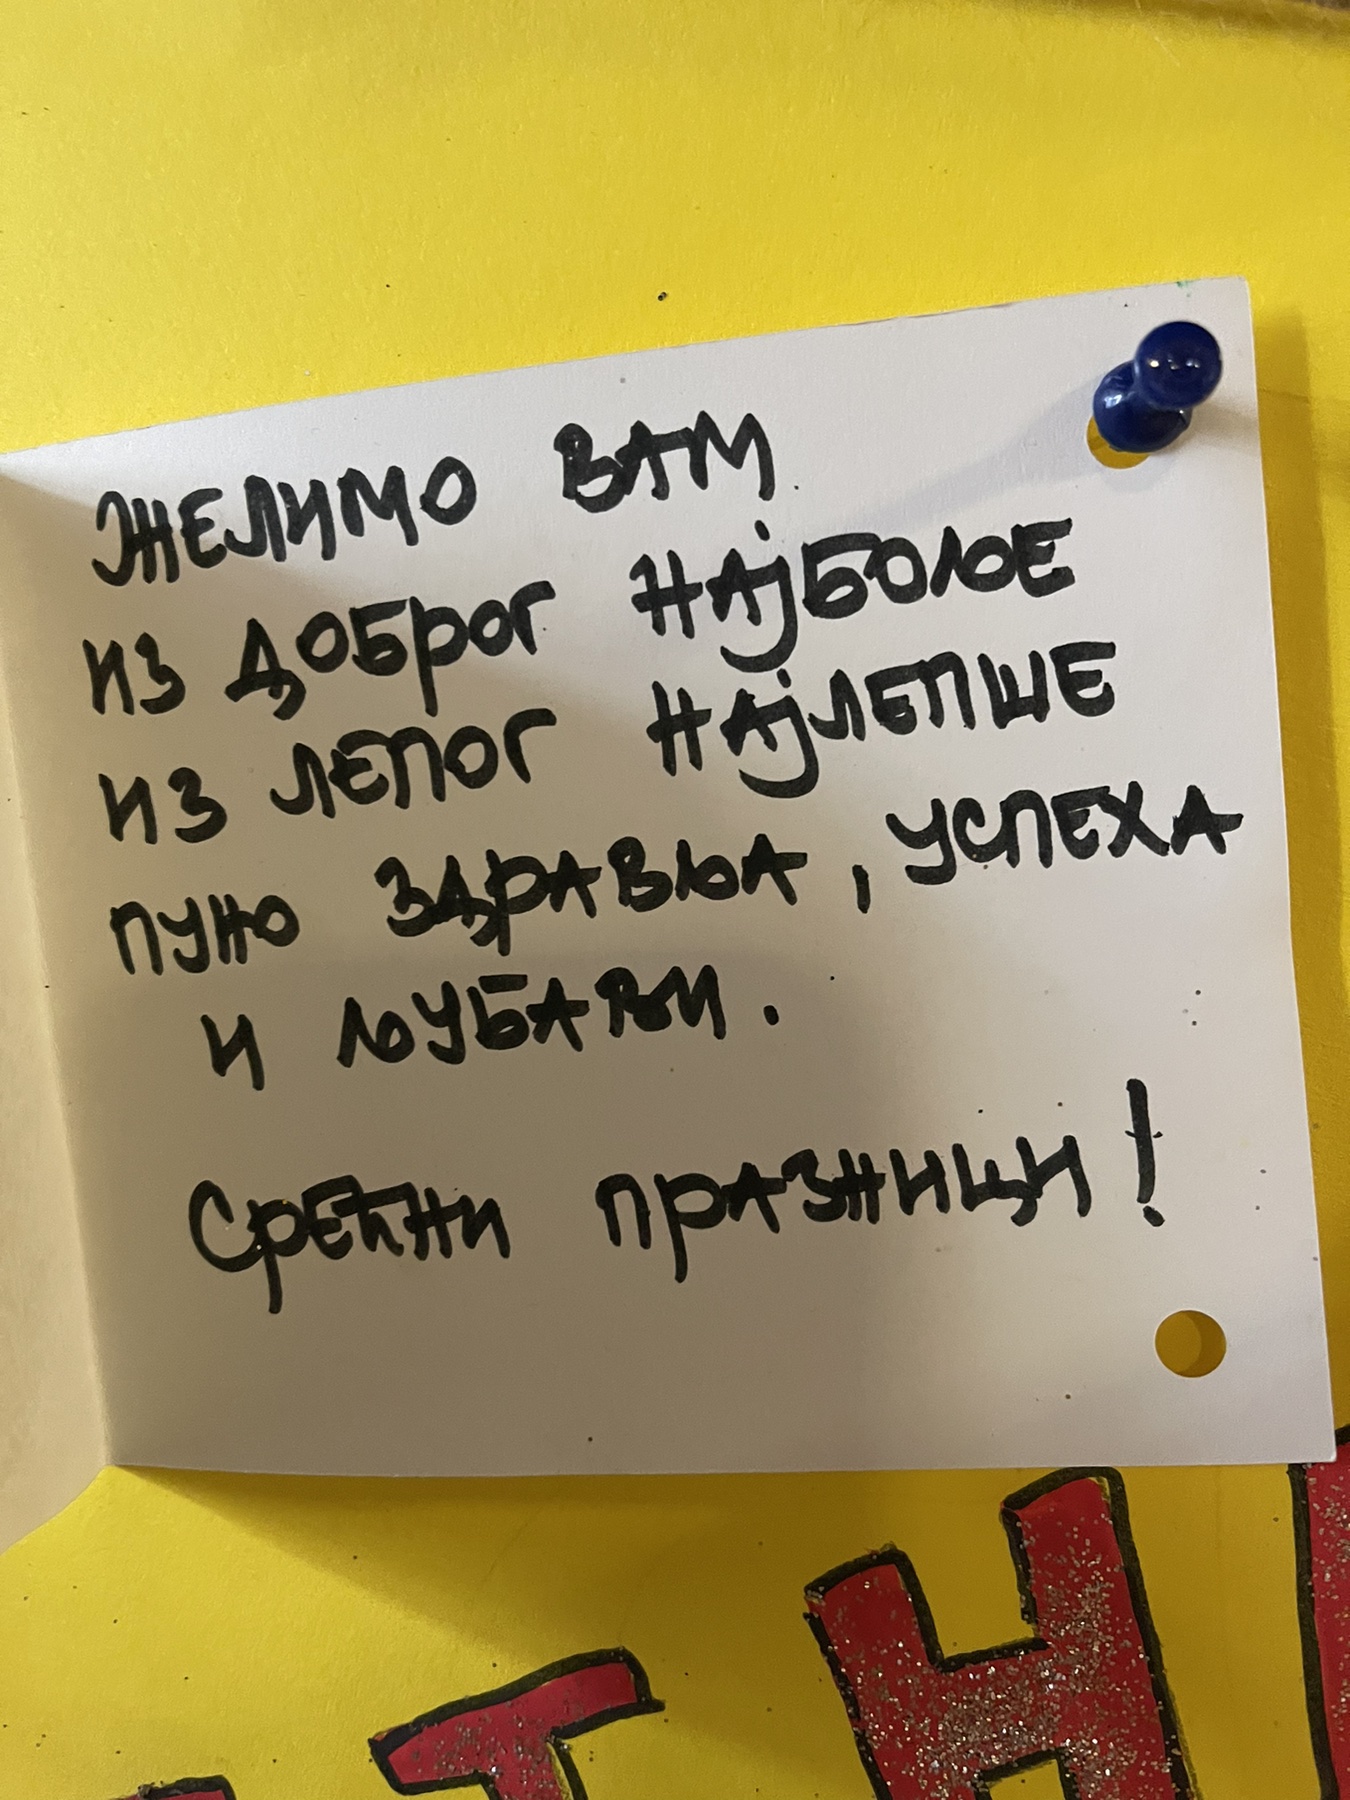 ЖЕЛИМО ВАМ
ИЗ ДОБРОГ НАЈБОЉЕ
ИЗ ЛЕПОГ НАЈЛЕПШЕ
ПУНО ЗДРАВЉА, УСПЕХА
И ЉУБАВИ.
СРЕЋНИ ПРАЗНИЦИ!